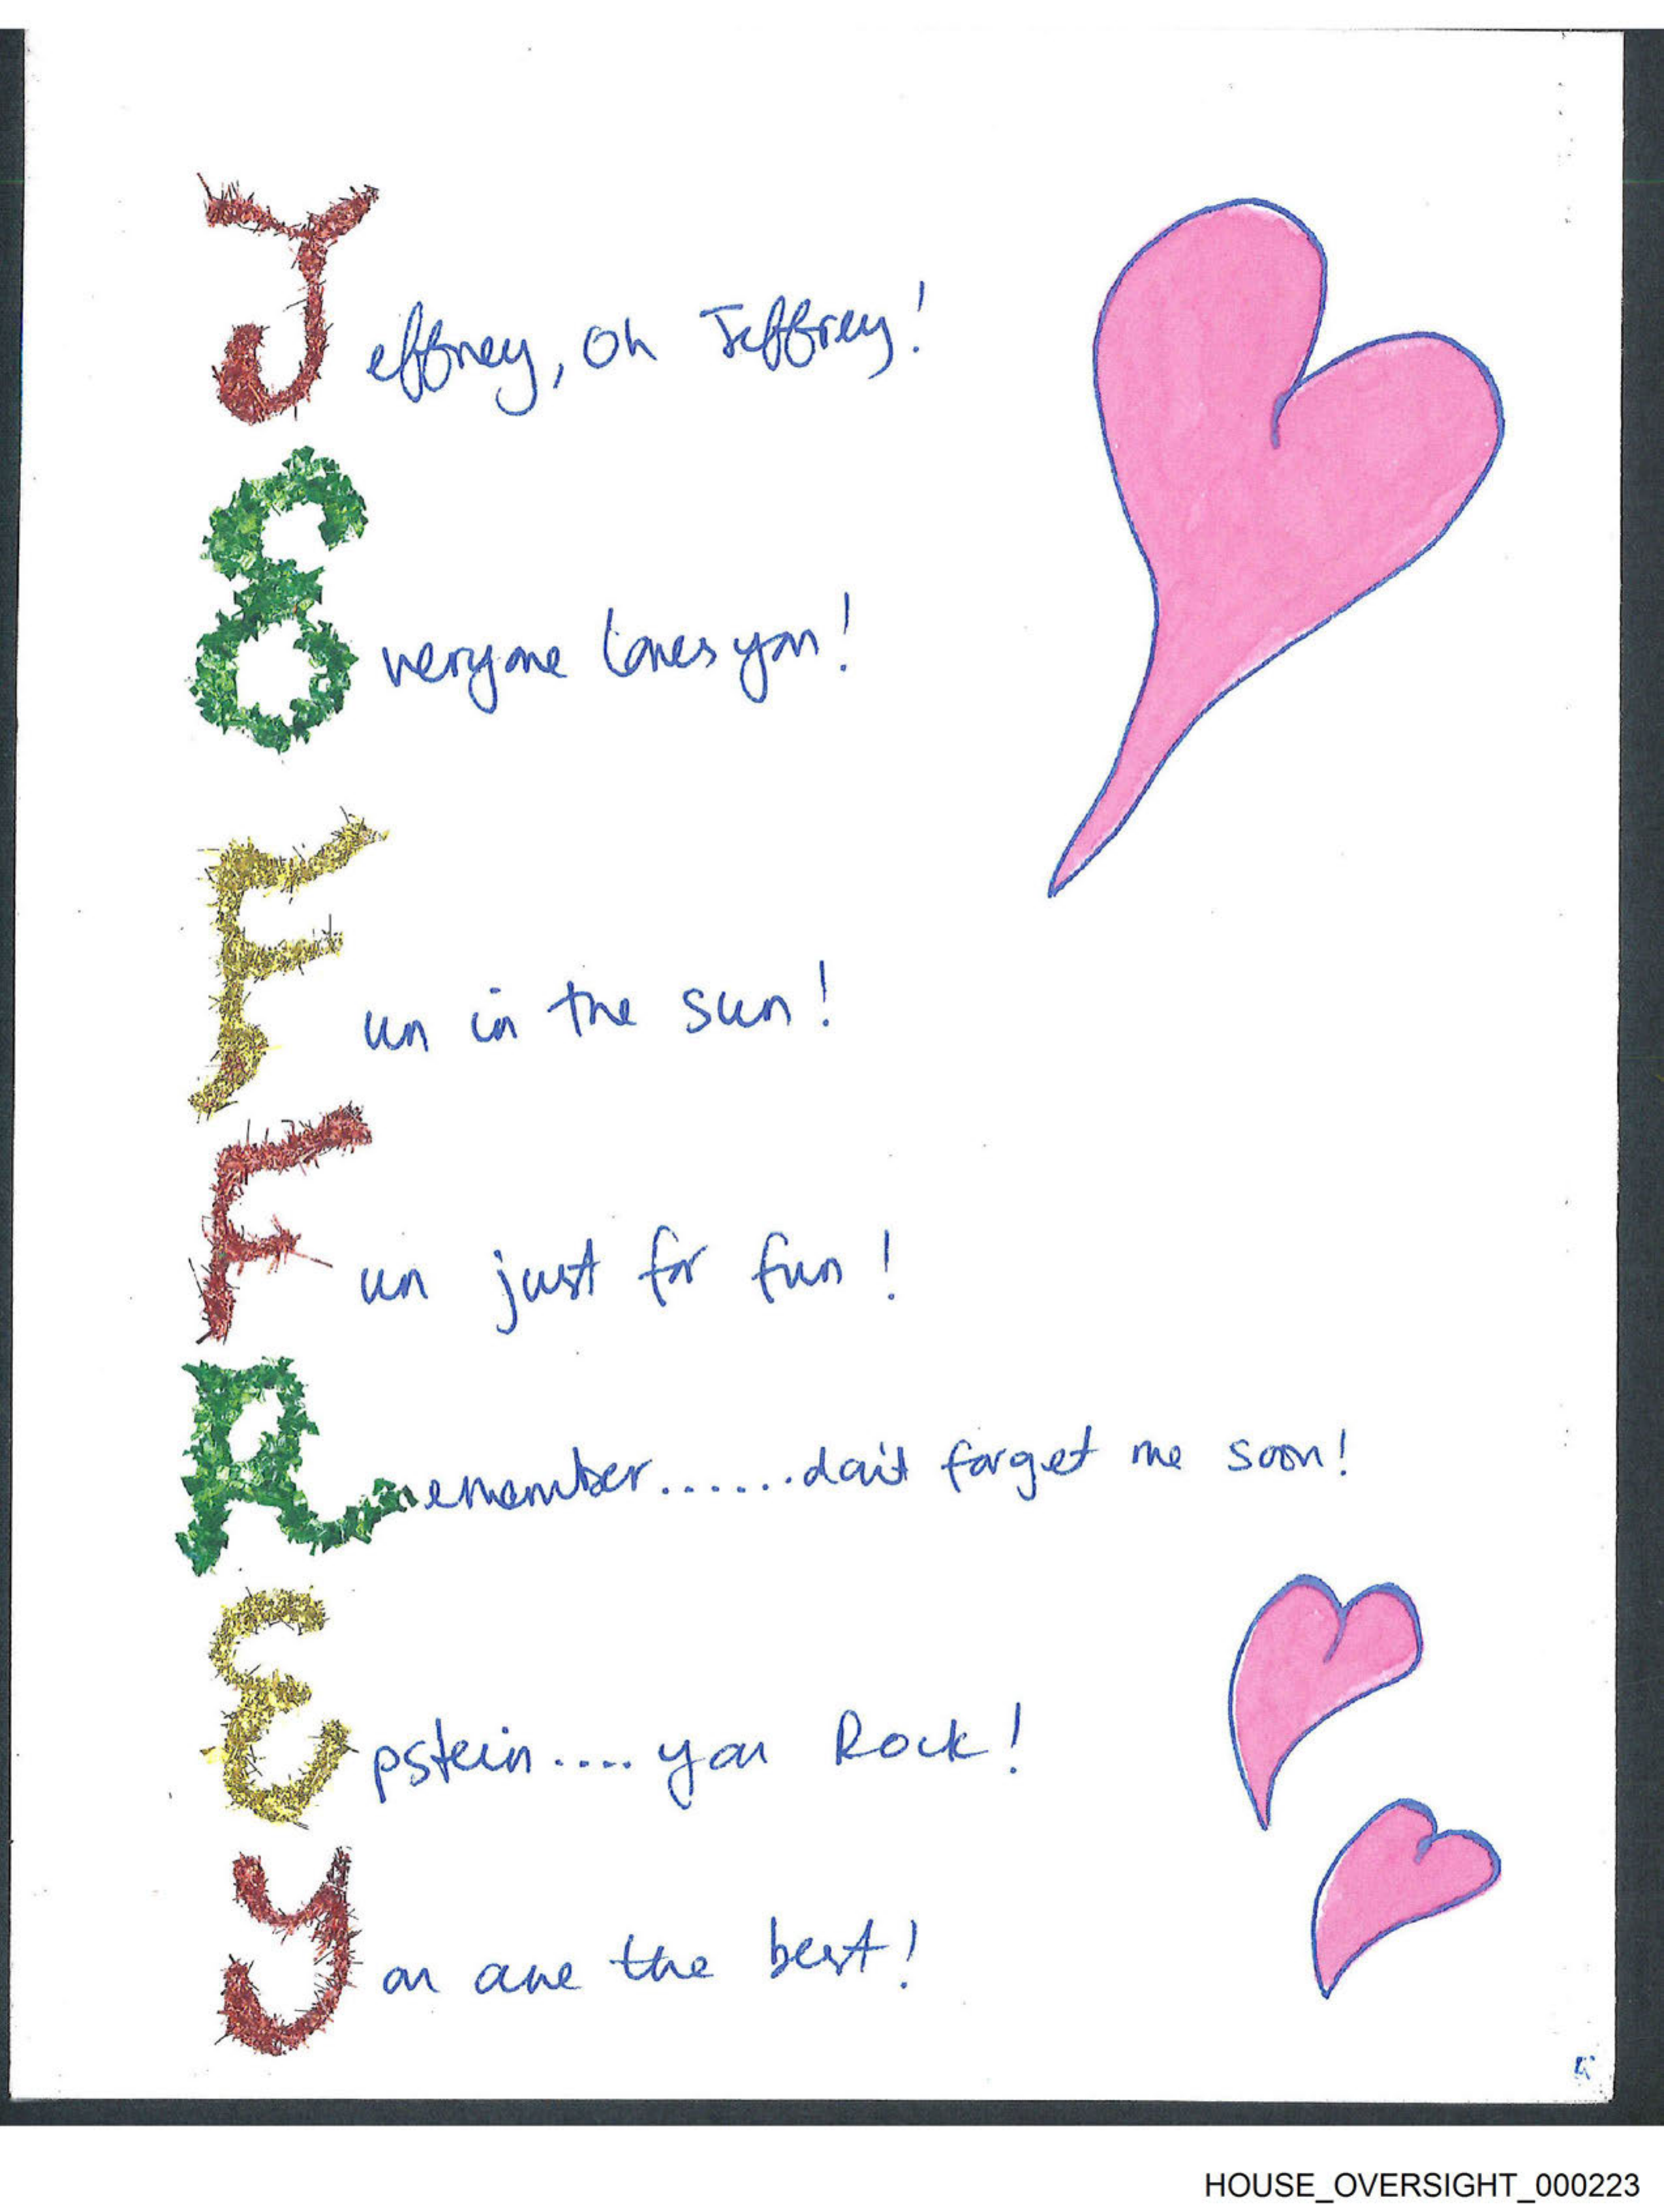 Jeffrey, oh Jeffrey!
Everyone loves you!
Fun in the sun!
Fun just for fun!
Remember......don't forget me soon!
Epstein.... you Rock!
You are the best!
HOUSE_OVERSIGHT_000223